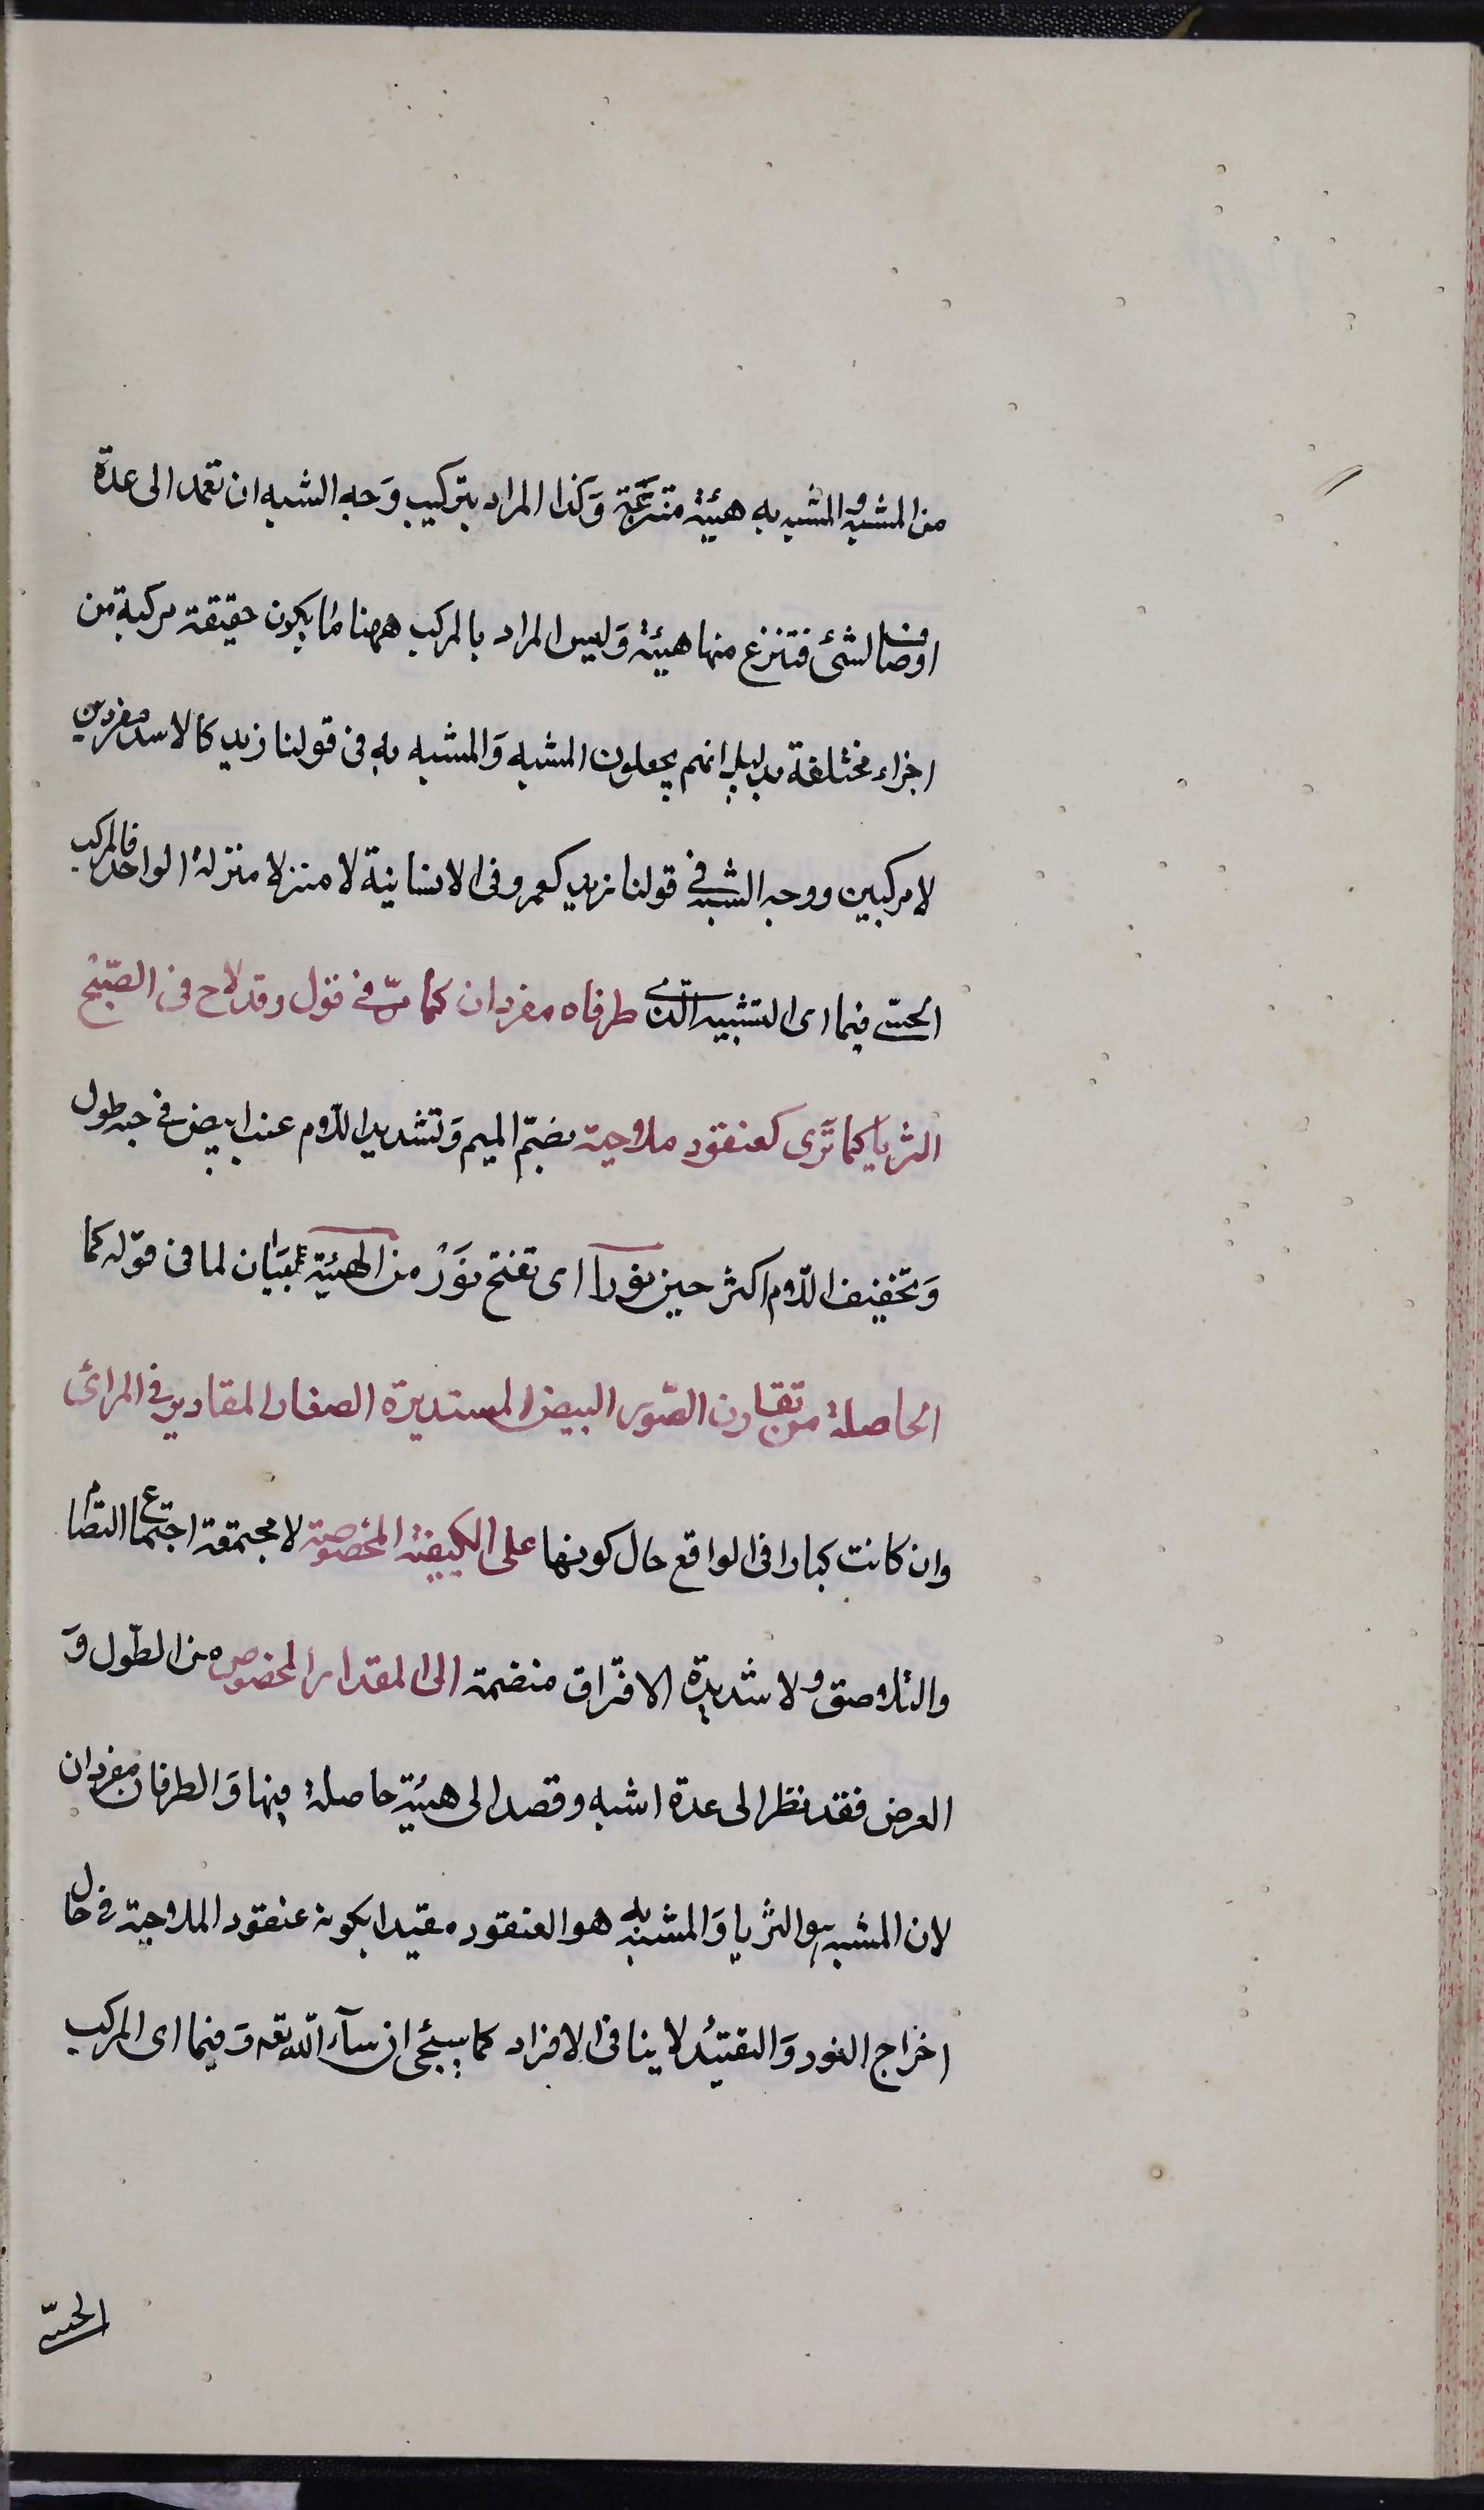 من المشبه والمشبه به هيئة منتزعة وكذا المراد بتركيب وجه الشبه ان تعمد الى عدة
اوصاف لشئ فتنزع منها هيئة وليس المراد بالمركب ههنا ما يكون حقيقة مركبة من
اجزاء مختلفة بدليل انهم يجعلون المشبه والمشبه به فى قولنا زيد كالاسد مفردين
لا مركبين ووجه الشبه فى قولنا زيد كعمرو فى الانسانية لا منزلا منزلة الواحد فالمركب
الحسّى فيما اى التشبيه الذى طرفاه مفردان كما مرّ فى قول وقد لاح فى الصّبح
الثريا كما ترى كعنقود ملاحية بضمّ الميم وتشديد اللام عنب ابيض فى حبه طول
وتخفيف اللام اكثر حين نورا اى تفتح نَوْر من الهيئة بيان لما فى قوله كما
الحاصلة من تقارن الصّور البيض المستديرة الصغار المقادير فى المرائ
وان كانت كبارا فى الواقع حال كونها على الكيفية المخصوصة لا مجتمعة اجتماع التضام
والتلاصق ولا شديدة الافتراق منضمة الى المقدار المخصوص من الطّول و
العرض فقد نظر الى عدة اشبه وقصد الى هيئة حاصلة منها والطرفان مفردان
لان المشبه هو الثريا والمشبه به هو العنقود مقيدا بكونه عنقود الملاحية فى حال
اخراج النور والتقيّد لا ينافى الافراد كما سيجئ ان شآء الله تعه وفيما اى المركب
الحسّى